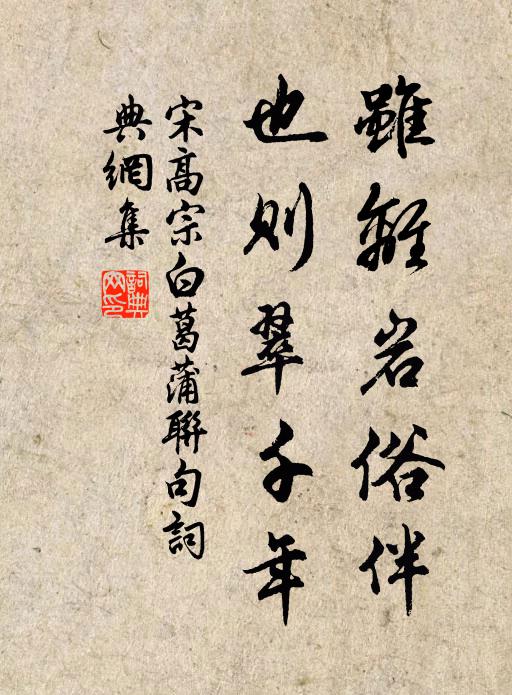 雖離岩俗伴
也則翠千年
宋高宗白葛蒲聯句詞
典網集
詞典
网印